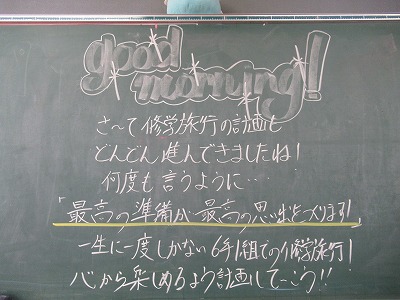 good
morning!
さ〜て修学旅行の計画も
どんどん進んできましたね!
何度も言うように…
「最高の準備が最高の思い出をつくります!」
一生に一度しかない6年1組での修学旅行!
心から楽しめるよう計画してこう!!